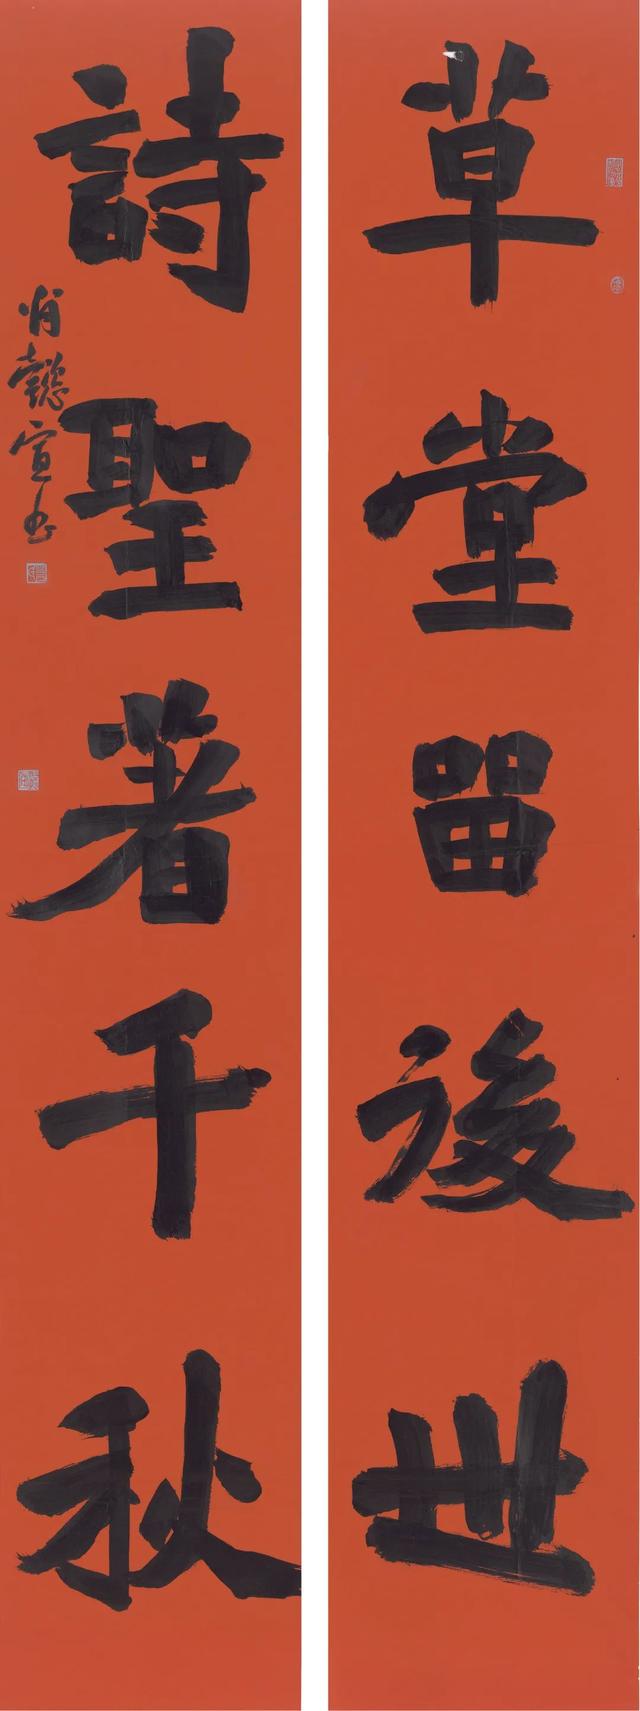 草堂留後世
詩聖著千秋
肖懿宣书